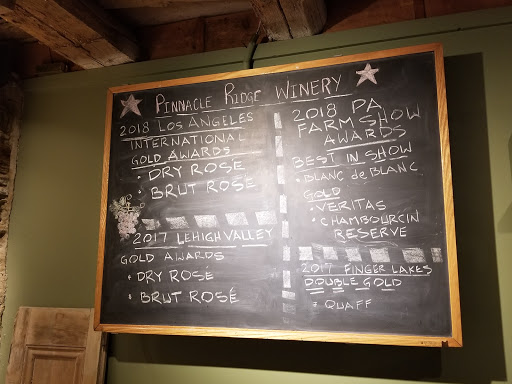 PINNACLE RIDGE WINERY
2018 LOS ANGELES
INTERNATIONAL
GOLD AWARDS
• DRY ROSE
• BRUT ROSE
2017 LEHIGH VALLEY
GOLD AWARDS
• DRY ROSÉ
• BRUT ROSÉ
2018 PA
FARM SHOW
AWARDS
BEST IN SHOW
• BLANC de BLANC
GOLD
• VERITAS
• CHAMBOURCIN
RESERVE
2017 FINGER LAKES
DOUBLE GOLD
• QUAFF